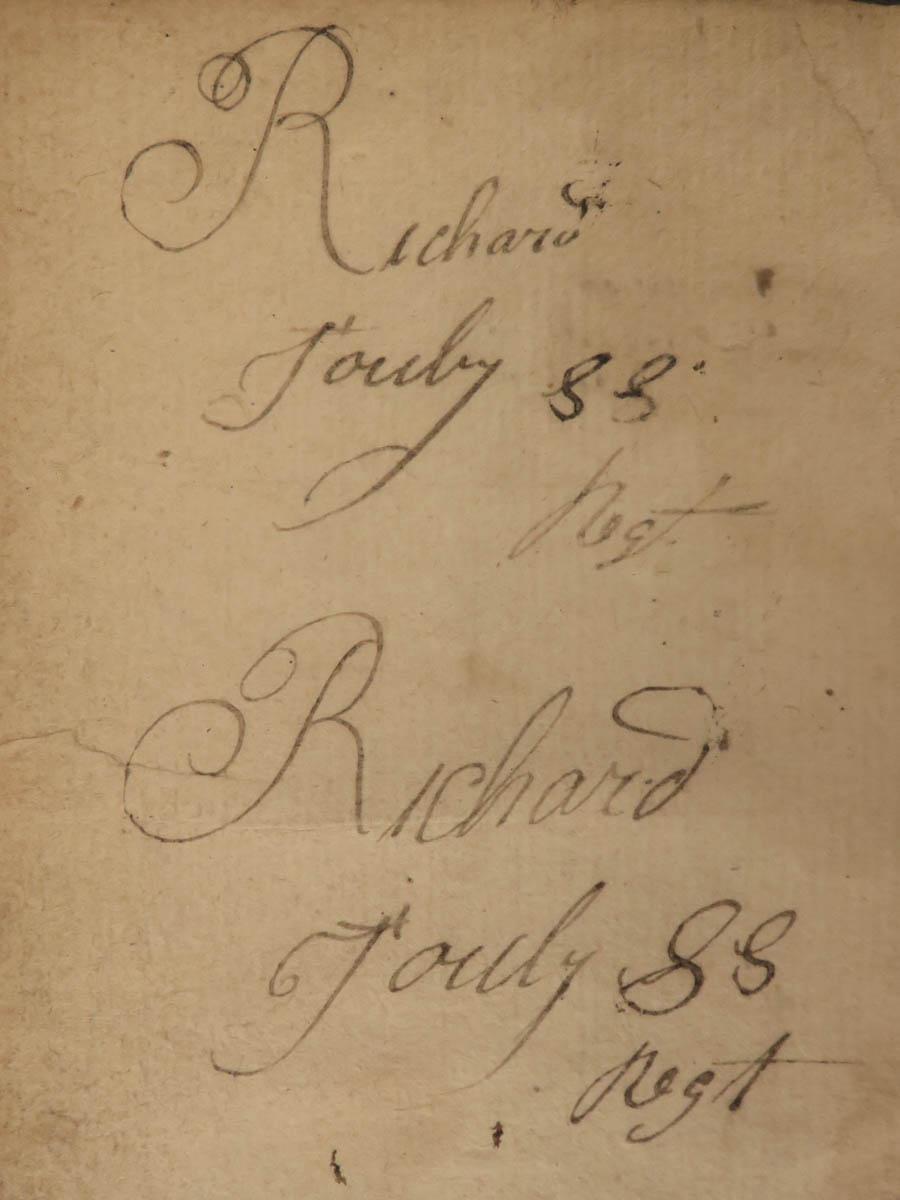 Richard
Jouby 88
Regt
Richard
Jouly 88
Regt